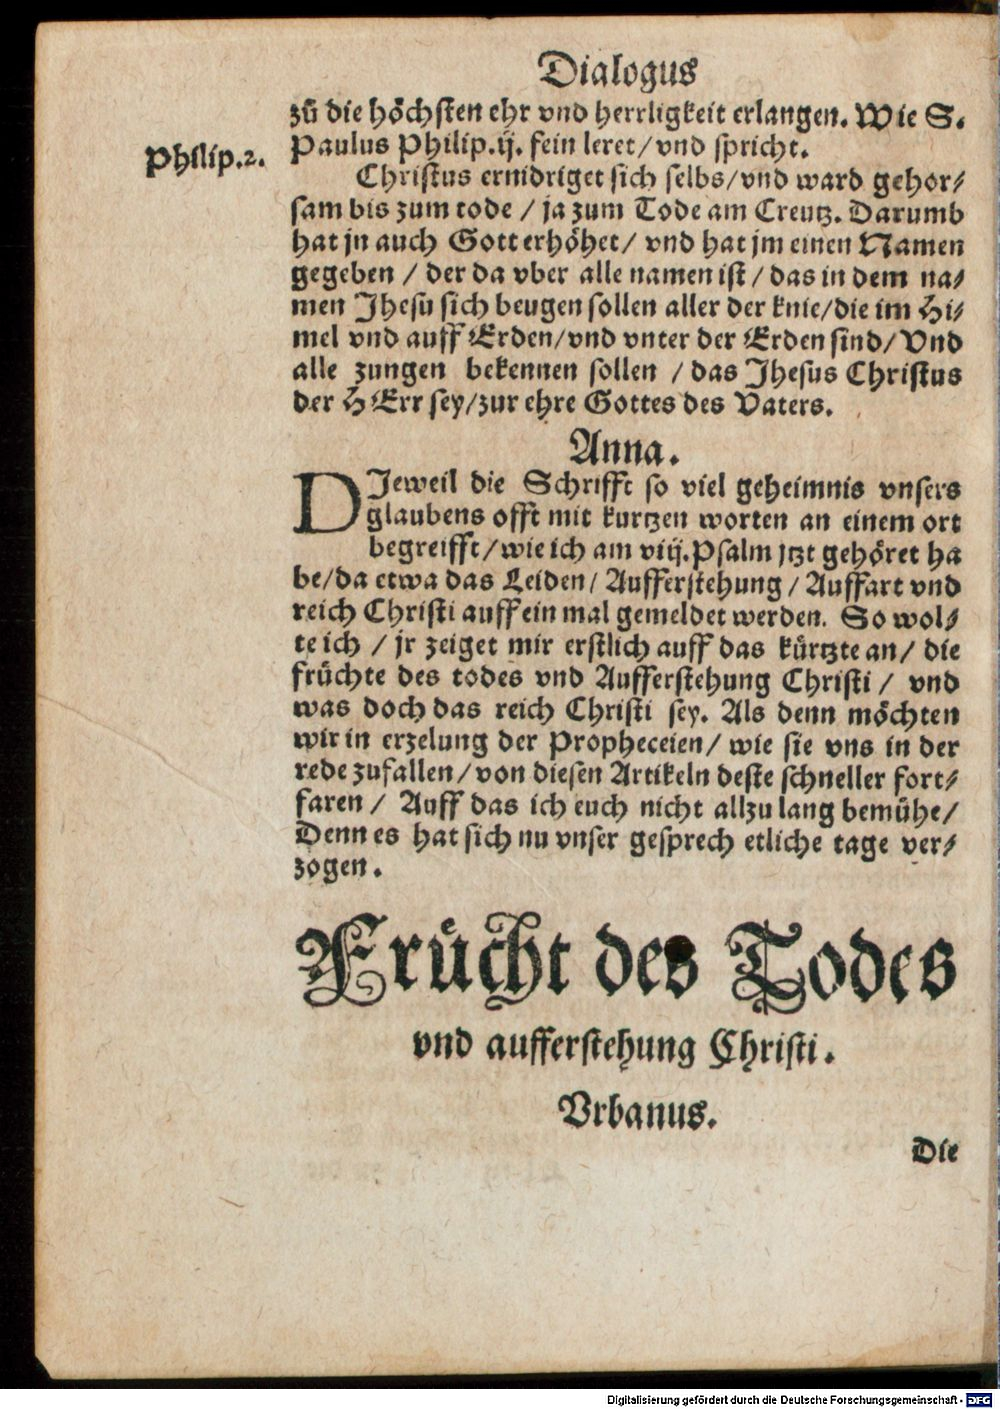 Dialogus
zů die höchsten ehr vnd herrligkeit erlangen. Wie S.
Philip.2.
Paulus Philip.ij. fein leret/vnd spricht.
Christus ernidriget sich selbs/vnd ward gehor/
sam bis zum tode / ja zum Tode am Creutz. Darumb
hat jn auch Gott erhöhet/ vnd hat jm einen Namen
gegeben / der da vber alle namen ist / das in dem na/
men Jhesu sich beugen sollen aller der knie/die im Hi/
mel vnd auff Erden/vnd vnter der Erden sind/ Vnd
alle zungen bekennen sollen / das Jhesus Christus
der HErr sey/zur ehre Gottes des Vaters.
Anna.
DJeweil die Schrifft so viel geheimnis vnsers
glaubens offt mit kurtzen worten an einem ort
begreifft/wie ich am viij.Psalm jtzt gehöret ha
be/da etwa das Leiden/ Aufferstehung / Auffart vnd
reich Christi auff ein mal gemeldet werden. So wol/
te ich / jr zeiget mir erstlich auff das kürtzte an/ die
früchte des todes vnd Aufferstehung Christi / vnd
was doch das reich Christi sey. Als denn möchten
wir in erzelung der Propheceien/ wie sie vns in der
rede zufallen/von diesen Artikeln deste schneller fort/
faren / Auff das ich euch nicht allzu lang bemühe/
Denn es hat sich nu vnser gesprech etliche tage ver/
zogen.
Frücht des Todes
vnd aufferstehung Christi.
Vrbanus.
Die
Digitalisierung gefördert durch die Deutsche Forschungsgemeinschaft - DFG